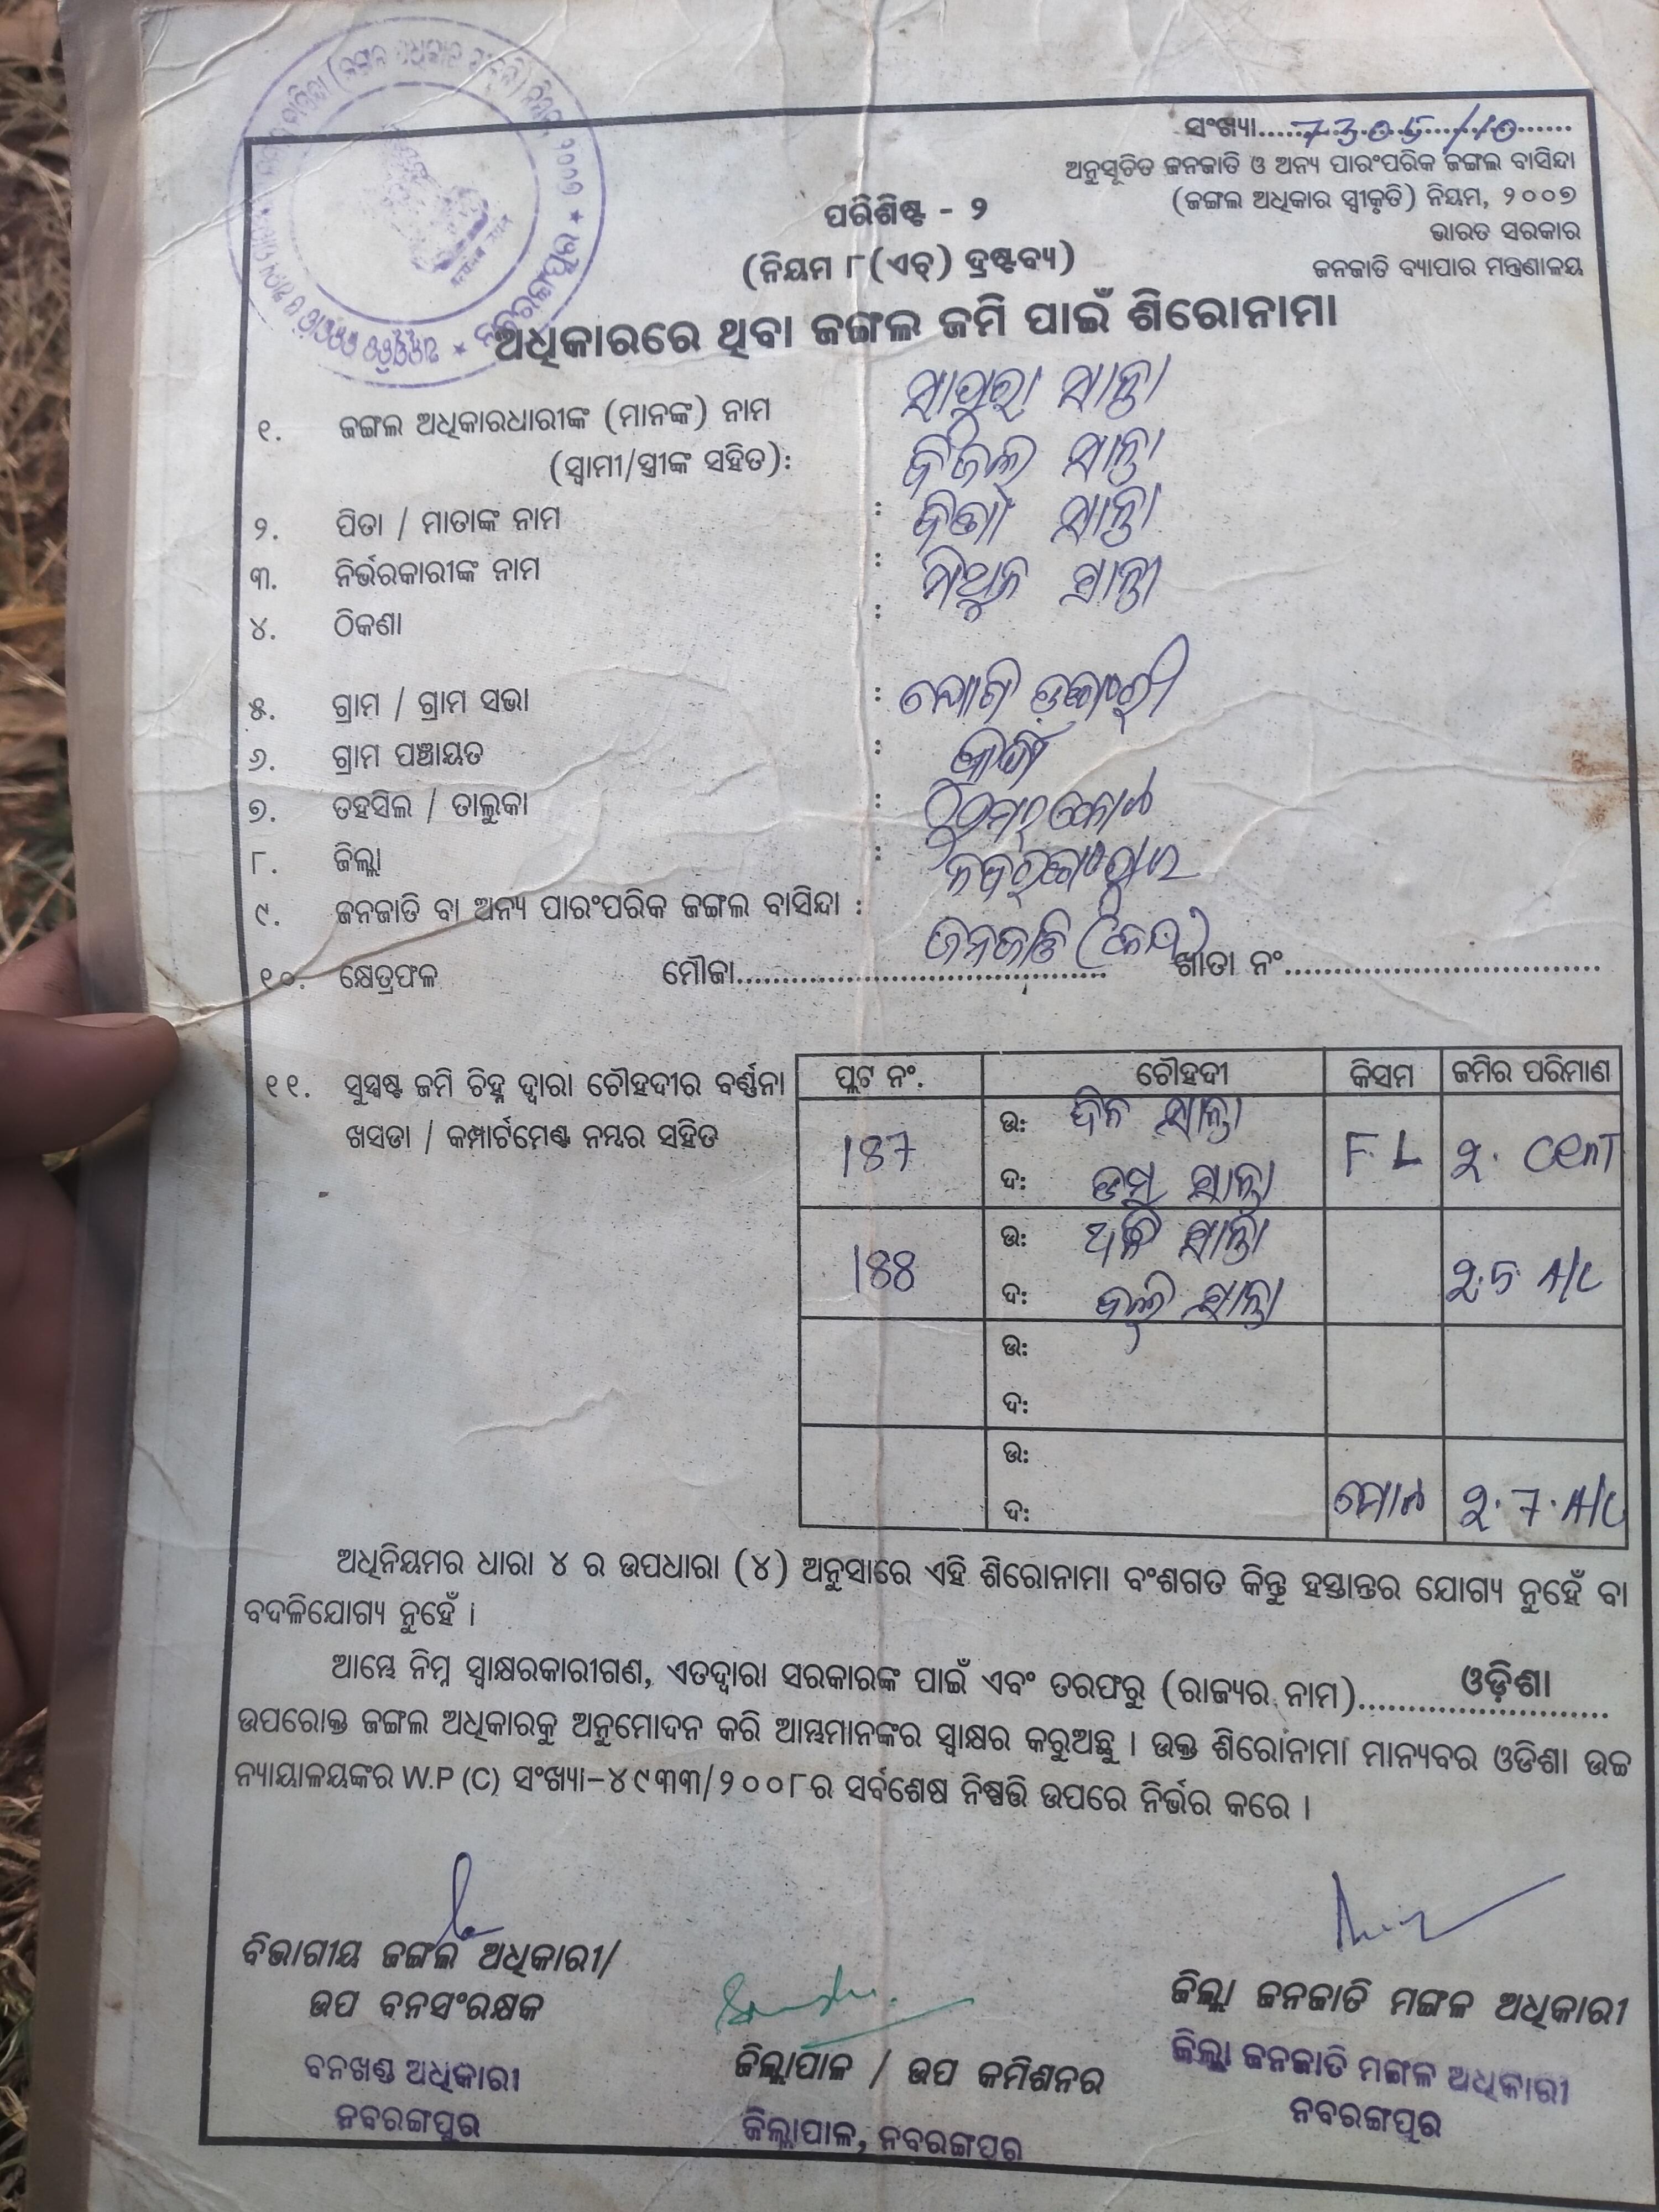 ସଂଖ୍ୟା.....7305/10.....
ଅନୁସୂଚିତ ଜନଜାତି ଓ ଅନ୍ୟ ପାରଂପରିକ ଜଙ୍ଗଲ ବାସିନ୍ଦା
(ଜଙ୍ଗଲ ଅଧିକାର ସ୍ୱୀକୃତି) ନିୟମ, ୨୦୦୭
ଭାରତ ସରକାର
ଜନଜାତି ବ୍ୟାପାର ମନ୍ତ୍ରଣାଳୟ
ପରିଶିଷ୍ଟ - ୨
(ନିୟମ ୮(ଏଚ୍) ଦ୍ରଷ୍ଟବ୍ୟ)
ଅଧିକାରରେ ଥିବା ଜଙ୍ଗଲ ଜମି ପାଇଁ ଶିରୋନାମା
୧. ଜଙ୍ଗଲ ଅଧିକାରଧାରୀଙ୍କ (ମାନଙ୍କ) ନାମ ସାନ୍ତା
(ସ୍ୱାମୀ/ସ୍ତ୍ରୀଙ୍କ ସହିତ): ସାନ୍ତା
୨. ପିତା / ମାତାଙ୍କ ନାମ : ସାନ୍ତା
୩. ନିର୍ଭରକାରୀଙ୍କ ନାମ : ମିଥୁନ ସାନ୍ତା
୪. ଠିକଣା :
୫. ଗ୍ରାମ / ଗ୍ରାମ ସଭା :
୬. ଗ୍ରାମ ପଞ୍ଚାୟତ :
୭. ତହସିଲ / ତାଲୁକା :
୮. ଜିଲ୍ଲା : ନବରଙ୍ଗପୁର
୯. ଜନଜାତି ବା ଅନ୍ୟ ପାରଂପରିକ ଜଙ୍ଗଲ ବାସିନ୍ଦା : ଜନଜାତି
୧୦. କ୍ଷେତ୍ରଫଳ ମୌଜା.......... ଖାତା ନଂ..........
୧୧. ସୁସ୍ପଷ୍ଟ ଜମି ଚିହ୍ନ ଦ୍ୱାରା ଚୌହଦୀର ବର୍ଣ୍ଣନା
ଖସଡା / କମ୍ପାର୍ଟମେଣ୍ଟ ନମ୍ବର ସହିତ
ପ୍ଲଟ ନଂ. ଚୌହଦୀ କିସମ ଜମିର ପରିମାଣ
187 ଉ: ସାନ୍ତା F.L ୨. Cent
ଦ: ସାନ୍ତା
188 ଉ: ସାନ୍ତା ୨.5 A/C
ଦ: ସାନ୍ତା
ଉ:
ଦ:
ଉ:
ଦ: ମୋଟ ୨.7.A/C
ଅଧିନିୟମର ଧାରା ୪ ର ଉପଧାରା (୪) ଅନୁସାରେ ଏହି ଶିରୋନାମା ବଂଶଗତ କିନ୍ତୁ ହସ୍ତାନ୍ତର ଯୋଗ୍ୟ ନୁହେଁ ବା
ବଦଳିଯୋଗ୍ୟ ନୁହେଁ ।
ଆମ୍ଭେ ନିମ୍ନ ସ୍ୱାକ୍ଷରକାରୀଗଣ, ଏତଦ୍ୱାରା ସରକାରଙ୍କ ପାଇଁ ଏବଂ ତରଫରୁ (ରାଜ୍ୟର ନାମ).....ଓଡ଼ିଶା.....
ଉପରୋକ୍ତ ଜଙ୍ଗଲ ଅଧିକାରକୁ ଅନୁମୋଦନ କରି ଆମ୍ଭମାନଙ୍କର ସ୍ୱାକ୍ଷର କରୁଅଛୁ । ଉକ୍ତ ଶିରୋନାମା ମାନ୍ୟବର ଓଡିଶା ଉଚ୍ଚ
ନ୍ୟାୟାଳୟଙ୍କର W.P (C) ସଂଖ୍ୟା-୪୯୩୩/୨୦୦୮ର ସର୍ବଶେଷ ନିଷ୍ପତ୍ତି ଉପରେ ନିର୍ଭର କରେ ।
ବିଭାଗୀୟ ଜଙ୍ଗଲ ଅଧିକାରୀ/
ଉପ ବନସଂରକ୍ଷକ
ବନଖଣ୍ଡ ଅଧିକାରୀ
ନବରଙ୍ଗପୁର
ଜିଲ୍ଲାପାଳ / ଉପ କମିଶନର
ଜିଲ୍ଲାପାଳ, ନବରଙ୍ଗପୁର
ଜିଲ୍ଲା ଜନଜାତି ମଙ୍ଗଳ ଅଧିକାରୀ
ଜିଲ୍ଲା ଜନଜାତି ମଙ୍ଗଳ ଅଧିକାରୀ
ନବରଙ୍ଗପୁର